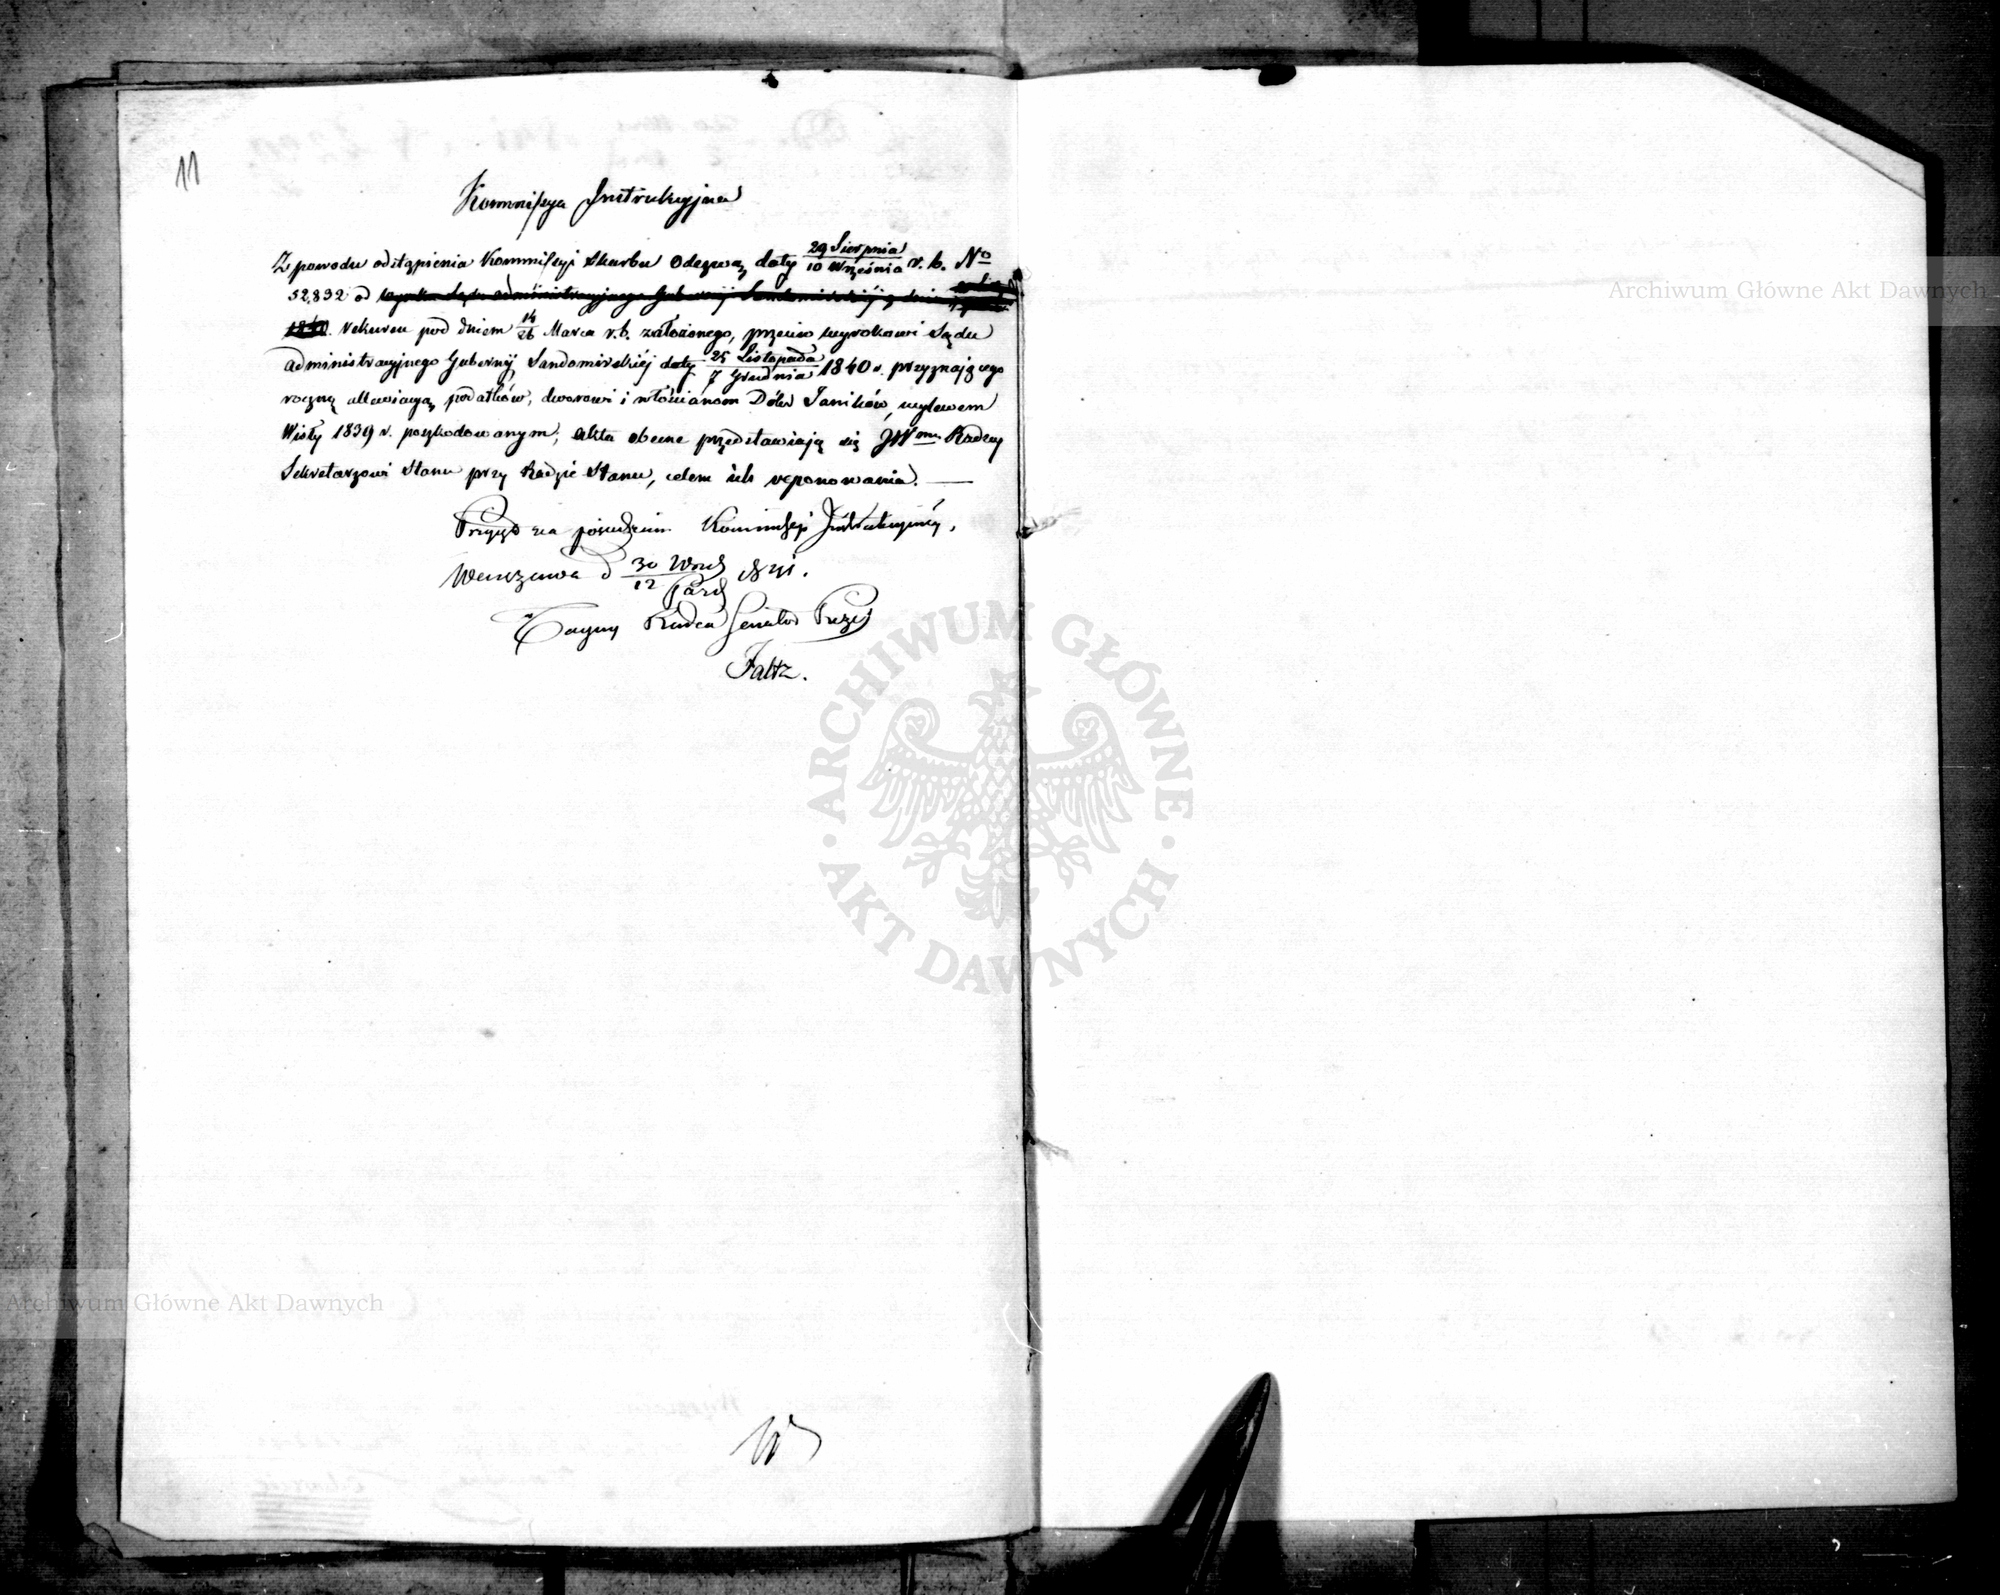 11
Kommissya Instrukcyjna
Z powodu odstąpienia Kommissyi Skarbu Odezwą daty 29 Sierpnia / 10 Września r. b. No
52,832 od wyroku Sądu administracyjnego Gubernij Sandomirskiéj z dnia
1840. rekursu pod dniem 14/26 Marca r.b. założonego, przeciw wyrokowi Sądu
administracyjnego Gubernij Sandomirskiéj daty 25 Listopada / 7 Grudnia 1840 r. przyznającego
roczną allewiacyą podatków, dworowi i włościanom Dóbr Janików, wylewem
Wisły 1839 r. poszkodowanym; akta obecne przedstawiają się JWmu Radcy
Sekretarzowi Stanu przy Radzie Stanu, celem ich reponowania. —
Przyjęto na posiedzeniu Kommissyi Instrukcyjnéj,
Warszawa d 30 Wrześ / 12 Paźd 1841.
Tayny Radca Senator Prezes
Faltz.
Archiwum Główne Akt Dawnych
ARCHIWUM GŁÓWNE
AKT DAWNYCH
Archiwum Główne Akt Dawnych